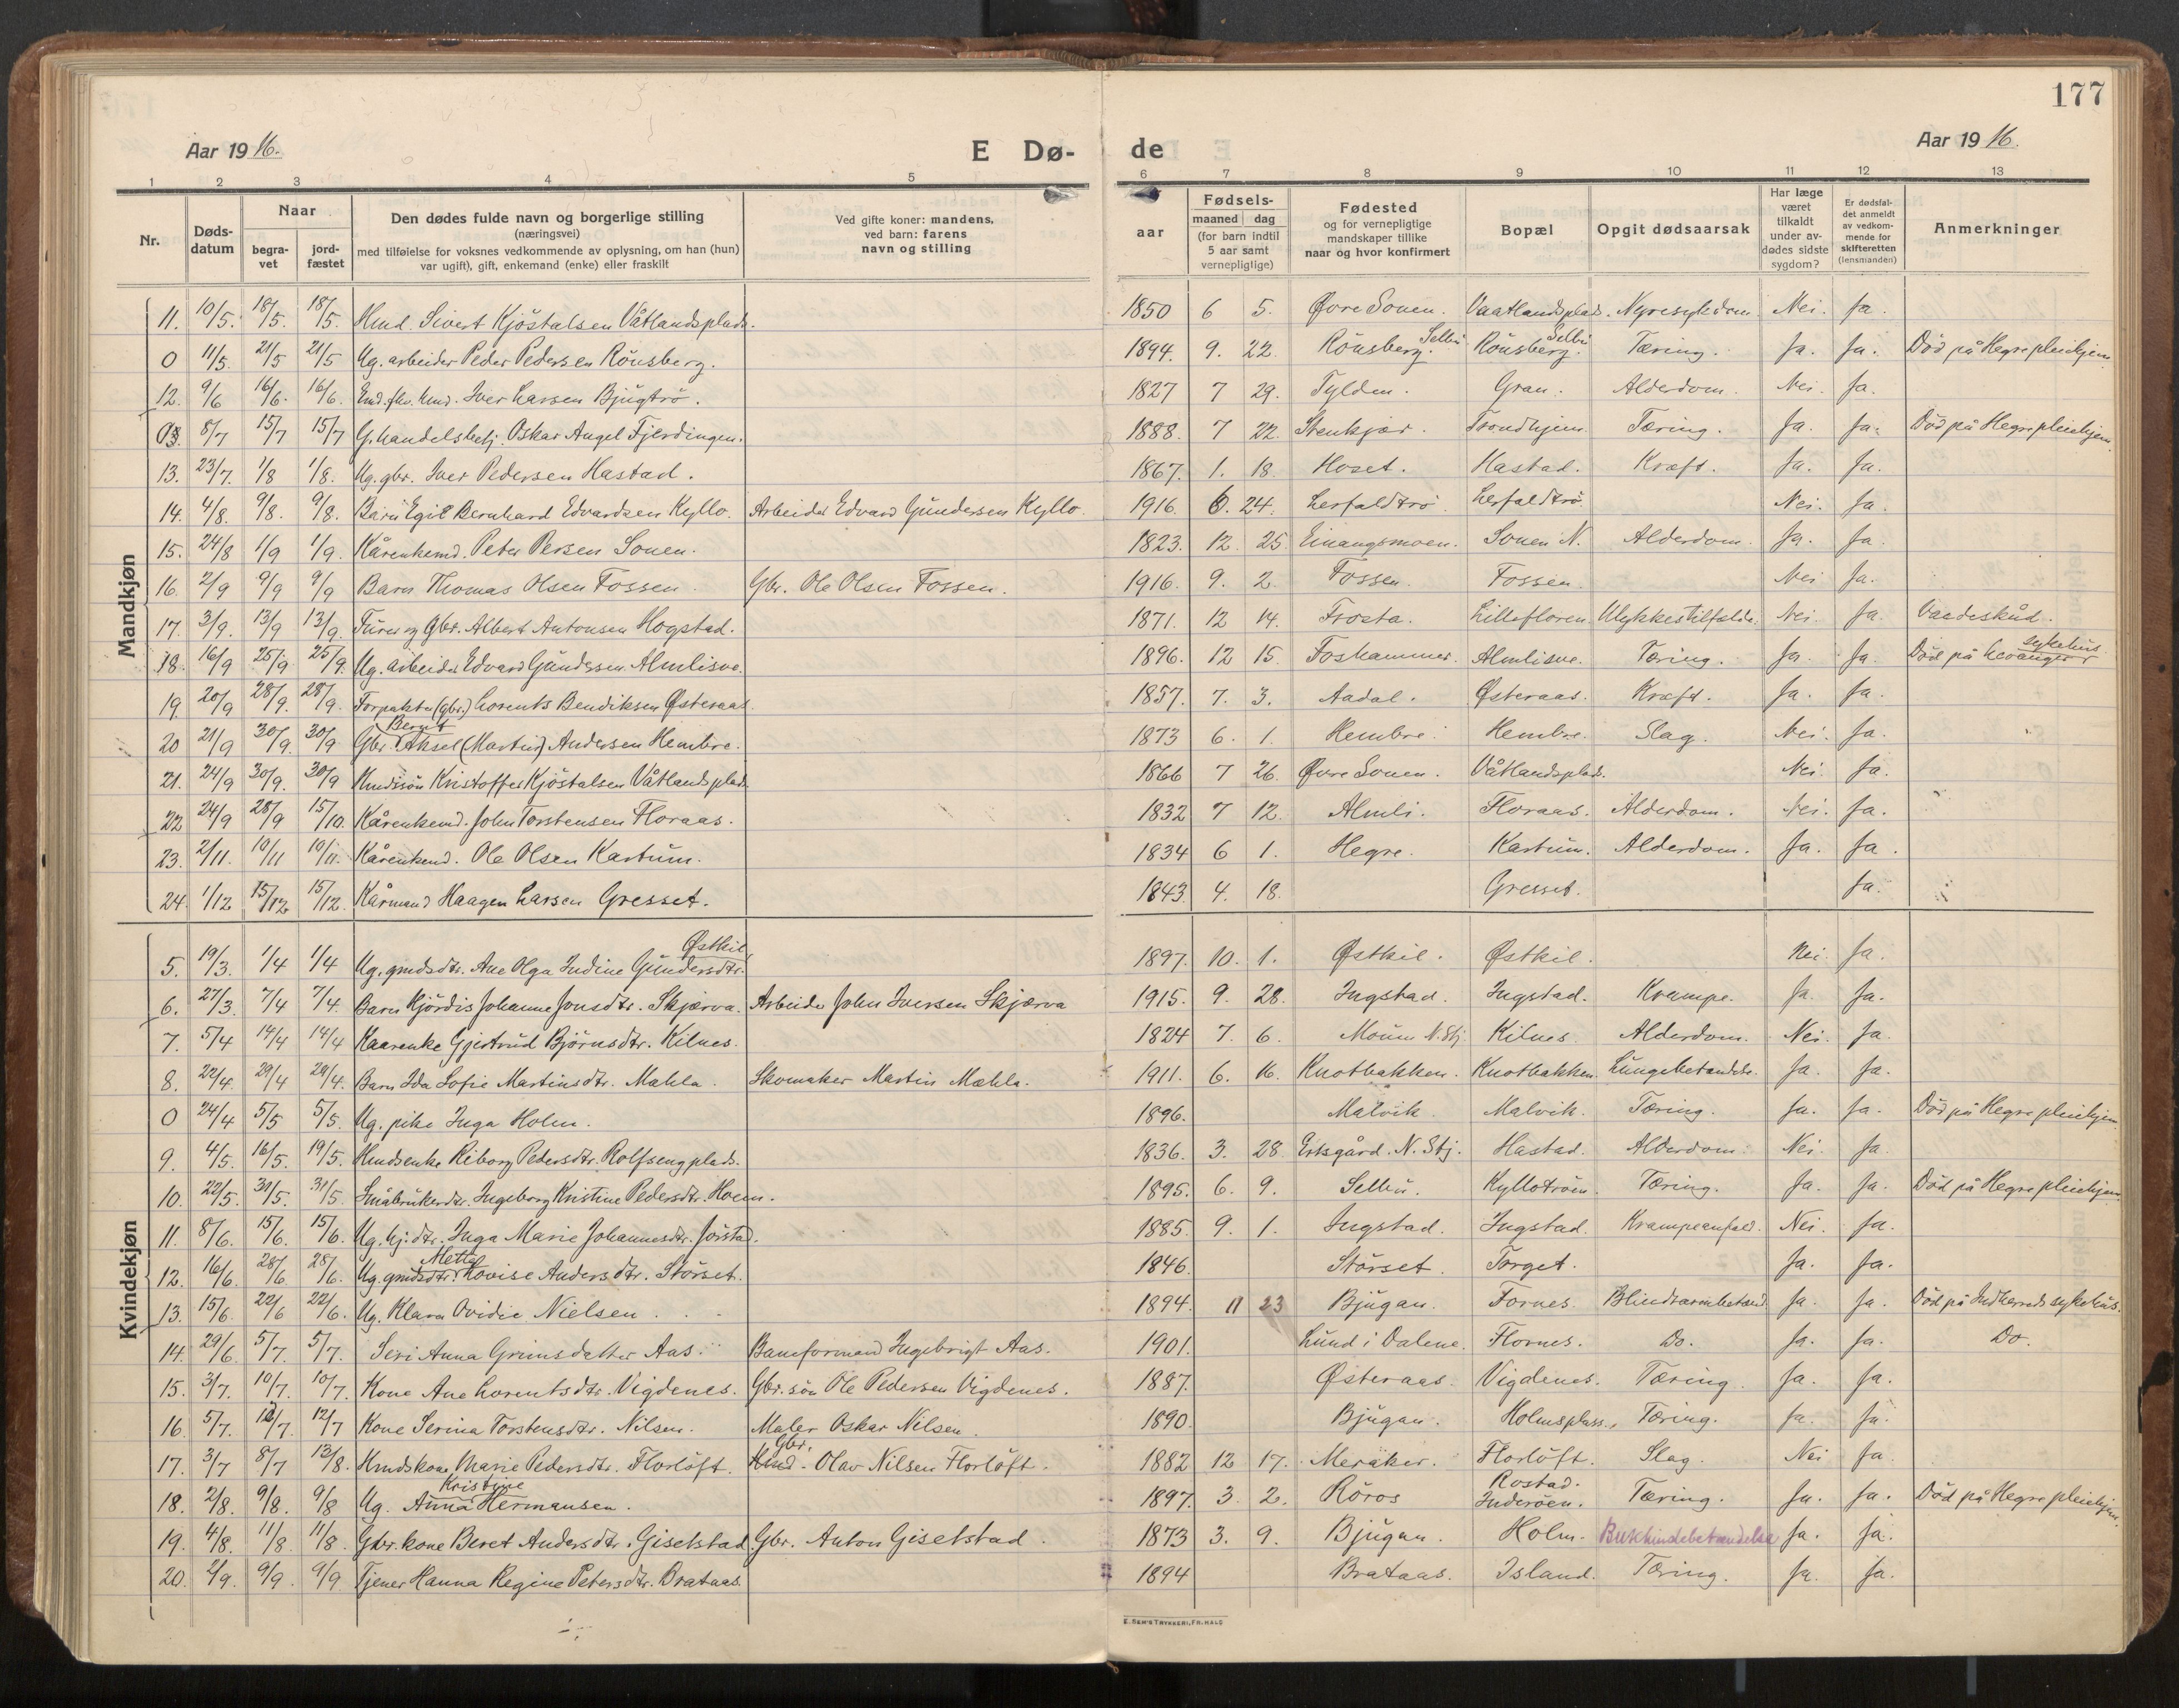 177
Aar 1916.
E Dø- de
Aar 1916.
1 2 3 4 5 6 7 8 9 10 11 12 13
Nr.
Døds-datum
Naar
begra-vet
jord-fæstet
Den dødes fulde navn og borgerlige stilling
(næringsvei)
med tilføielse for voksnes vedkommende av oplysning, om han (hun)
var ugift), gift, enkemand (enke) eller fraskilt
Ved gifte koner: mandens,
ved barn: farens
navn og stilling
aar
Fødsels-
maaned dag
(for barn indtil
5 aar samt
vernepligtige)
Fødested
og for vernepligtige
mandskaper tillike
naar og hvor konfirmert
Bopæl
Opgit dødsaarsak
Har læge
været
tilkaldt
under av-
dødes sidste
sygdom?
Er dødsfal-
det anmeldt
av vedkom-
mende for
skifteretten
(lensmanden)
Anmerkninger
Mandkjøn
11. 10/5. 18/5. 18/5. Hmd. Sivert Kjöstalsen Våtlandsplads. 1850 6 5. Øvre Sonen. Vaatlandsplads. Nyresykdom. Nei. Ja.
0 11/5. 21/5 21/5 Ug. arbeider Peder Pedersen Rönsberg. 1894. 9. 22. Rönsberg. Selbu Rönsberg. Selbu Tæring. Ja. Ja. Död på Hegre pleiehjem.
12. 9/6 16/6. 16/6. Emd. fhv. hmd. Iver Larsen Bjugtrö. 1827 7 29. Tylden. Gran. Alderdom. Nei. Ja.
03. 8/7 15/7 15/7 G. handelsbetj. Oskar Angel Fjerdingen. 1888. 7 22. Stenkjær. Trondhjem. Tæring. Ja. Ja. Död på Hegre pleiehjem.
13. 23/7. 1/8 1/8. Ug. gbr. Iver Pedersen Hastad. 1867. 1. 18. Hoset. Hastad. Kræft. Ja. Ja.
14. 4/8. 9/8. 9/8. Barn Egil Bernhard Edvardsen Kyllo. Arbeider Edvard Gundersen Kyllo. 1916. 6. 24. Lerfaldtrö. Lerfaldtrö. Nei. Ja.
15. 24/8 1/9 1/9. Kårenkemd. Peter Persen Sonen. 1823. 12. 25. Einangsmoen. Sonen N. Alderdom. Ja. Ja.
16. 2/9 9/9 9/9 Barn Thomas Olsen Fossen. Gbr. Ole Olsen Fossen. 1916. 9. 2. Fossen. Fossen. Nei Ja.
17. 3/9. 13/9 13/9. Furer og Gbr. Albert Antonsen Hogstad. 1871. 12 14. Frosta. Lillefloren. Ulykkestilfælde. Nei. Ja. Vaadeskud.
18. 16/9 25/9. 25/9. Ug. arbeider Edvard Gundersen Almlisve. 1896. 12 15. Foshammer. Almlisve. Tæring. Ja. Ja. Död på Levanger sykehus.
19. 20/9 28/9. 28/9. Forpakter (gbr.) Lorents Bendiksen Østeraas. 1857. 7. 3. Aadal. Østeraas. Kræft. Ja. Ja.
20 21/9 30/9. 30/9 Gbr. Bernt Aksel (Martin) Andersen Hembre. 1873 6. 1. Hembre. Hembre. Slag. Nei. Ja.
21. 24/9 30/9. 30/9 Hmdssön Kristoffer Kjöstalsen Våtlandsplads. 1866 7 26. Øvre Sonen. Våtlandsplads. Nei. Ja.
22 24/9 28/9 15/10. Kårenkemd. John Torstensen Floraas. 1832 7 12. Almli. Floraas. Alderdom. Nei. Ja.
23. 2/11. 10/11 10/11. Kårenkemd. Ole Olsen Kartum. 1834 6 1. Hegre. Kartum. Alderdom. Ja. Ja.
24. 1/12 15/12 15/12. Kårmand Haagen Larsen Gresset. 1843. 4. 18. Gresset. Ja.
Kvindekjøn
5. 19/3. 1/4 1/4 Ug. gmdsdtr. Ane Olga Indine Gundersdtr. Østkil 1897. 10. 1. Østkil. Østkil. Nei. Ja.
6. 27/3. 7/4 7/4. Barn Hjördis Johanne Jonsdtr. Skjærva. Arbeider John Iversen Skjærva 1915. 9. 28. Ingstad. Ingstad. Krampe. Ja. Ja.
7. 5/4 14/4 14/4 Kaarenke Gjertrud Björnsdtr. Kilnes. 1824 7. 6. Moum N. Stj. Kilnes. Alderdom. Nei. Ja.
8. 22/4. 29/4 29/4. Barn Ida Sofie Martinsdtr. Mæhla. Skomaker Martin Mæhla. 1911. 6. 16. Knotbakken. Knotbakken. Lungebetændelse. Ja. Ja.
0 24/4 5/5 5/5. Ug. pike Inga Holm. 1896. Malvik. Malvik. Tæring. Ja. Ja. Död på Hegre pleiehjem.
9. 4/5. 16/5. 19/5. Hmdsenke Riborg Pedersdtr. Rolfsengplads. 1836. 3. 28. Ertsgård. N. Stj. Hastad. Alderdom. Nei. Ja.
10. 22/5. 31/5. 31/5 Småbrukerdtr. Ingeborg Kristine Pedersdtr. Hoem. 1895. 6. 9. Selbu. Kyllotröen. Tæring. Ja. Ja. Död på Hegre pleiehjem.
11. 8/6. 15/6. 15/6. Ug. hj. dtr. Inga Marie Johannesdtr. Jörstad. 1885. 9. 1. Ingstad. Ingstad. Krampeanfald. Nei. Ja.
12. 16/6. 28/6 28/6. Ug. gmdsdtr. Mette Lovise Andersdtr. Störset. 1846. Störset. Torget. Ja. Ja.
13. 15/6. 22/6 22/6. Ug. Klara Ovidie Nielsen. 1894. 11 23 Bjugan. Fornes. Blindtarmbetænd. Ja. Ja. Död på Indherreds sykehus.
14. 29/6. 5/7. 5/7. Seri Anna Grimsdatter Aas. Baneformand Ingebrigt Aas. 1901. Lund i Dalene. Flornes. Do. Ja. Ja. Do.
15. 3/7. 10/7. 10/7. Kone Ane Lorentsdtr. Vigdenes. Gbr. sön Ole Pedersen Vigdenes. 1887. Østeraas. Vigdenes. Tæring. Ja. Ja.
16. 5/7. 12/7. 12/7 Kone Serina Torstensdtr. Nilsen. Maler Oskar Nilsen. 1890. Bjugan. Holmsplass. Tæring. Ja. Ja.
17. 3/7 8/7 13/8. Hmdskone Marie Pedersdtr. Florlöft. Gbr. Hmd. Olav Nilsen Florlöft. 1882 12 17. Meråker. Florlöft. Slag. Nei Ja.
18. 2/8. 9/8. 9/8 Ug. Anna Kristine Hermansen. 1897. 3. 2. Röros Rostad. Inderöen. Tæring. Ja. Ja. Död på Hegre pleiehjem.
19. 4/8. 11/8. 11/8. Gbr. kone Beret Andersdtr. Gisetstad. Gbr. Anton Gisetstad. 1873 3. 9. Bjugan. Holm. Bukhindebetændelse Ja. Ja.
20. 2/9. 9/9. 9/9 Tjener Hanna Regine Petersdtr. Brataas. 1894 Brataas. Island. Tæring. Ja. Ja.
E. SEM'S TRYKKERI, FR.HALD